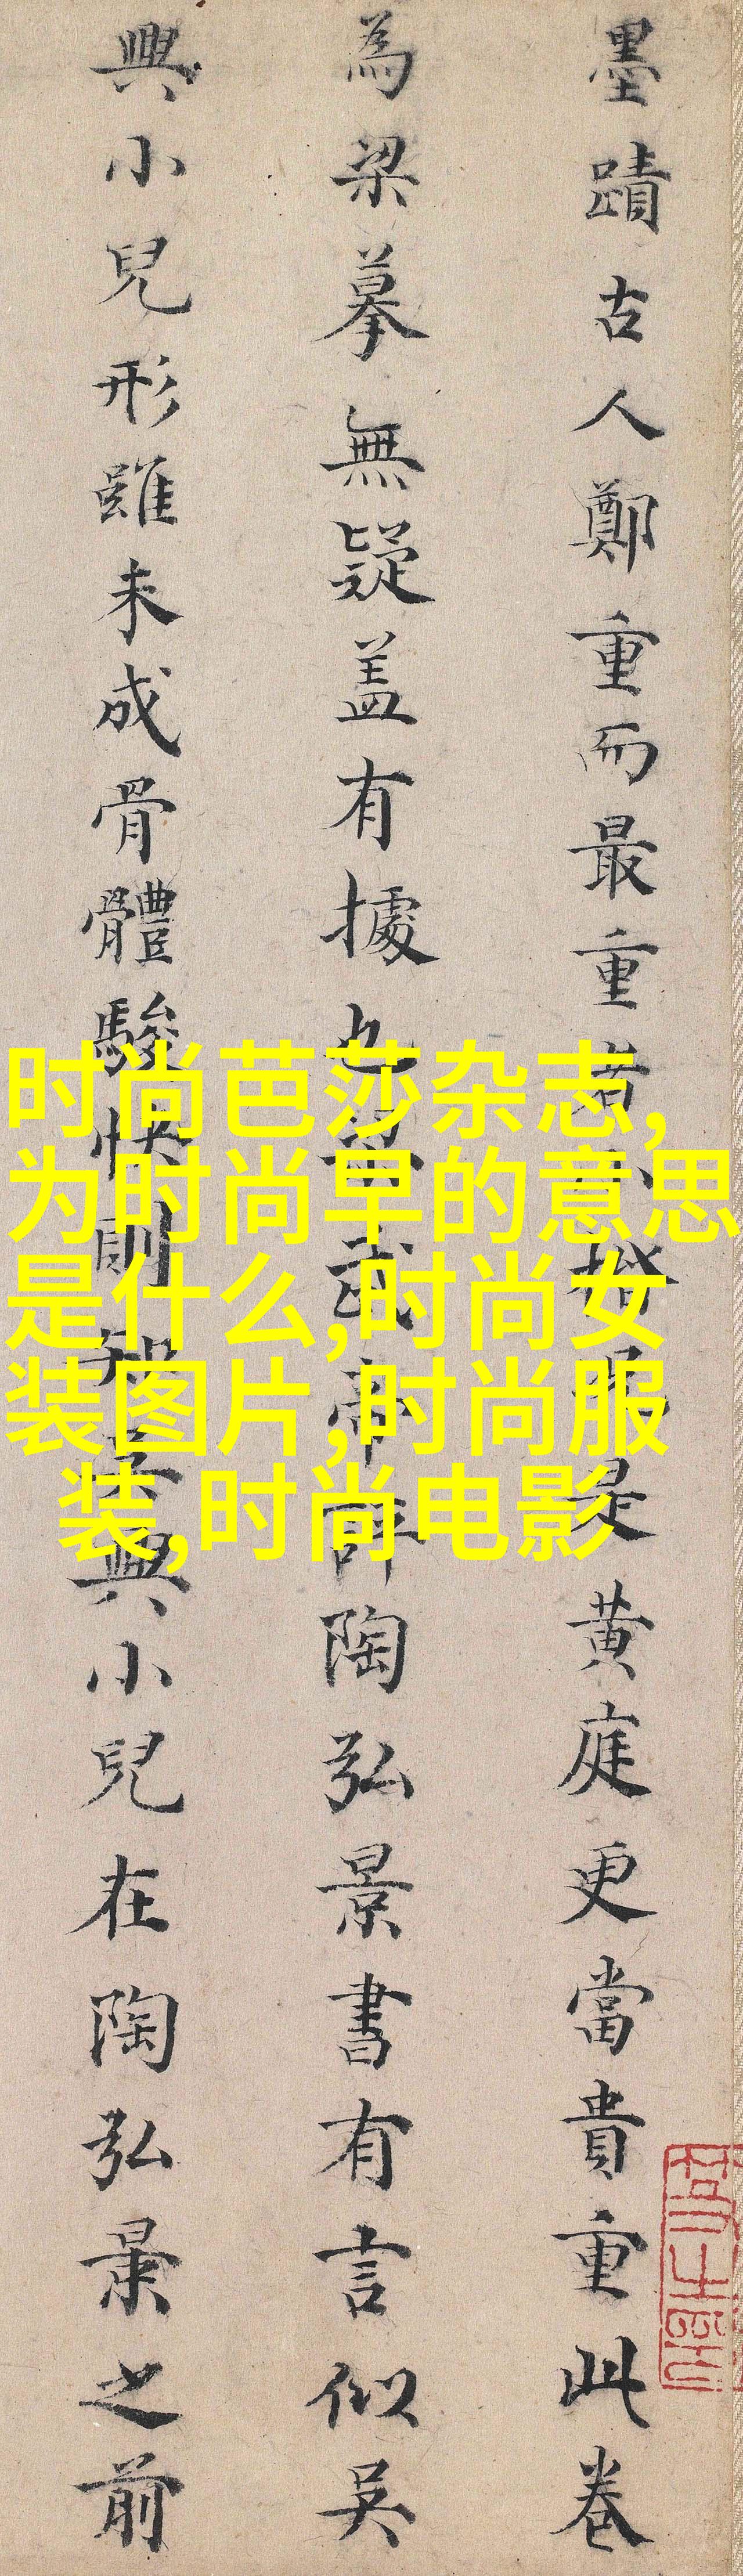 墨蹟古人鄭重而最重者小楷惟是黄庭更當貴重此卷
為梁摹無疑盖有據也梁武帝評陶弘景書有言似吴
興小兒形雖未成骨體駿快則知吴興小兒在陶弘景之前
时尚芭莎杂志,
为时尚早的意思
是什么,时尚女
装图片,时尚服
装,时尚电影